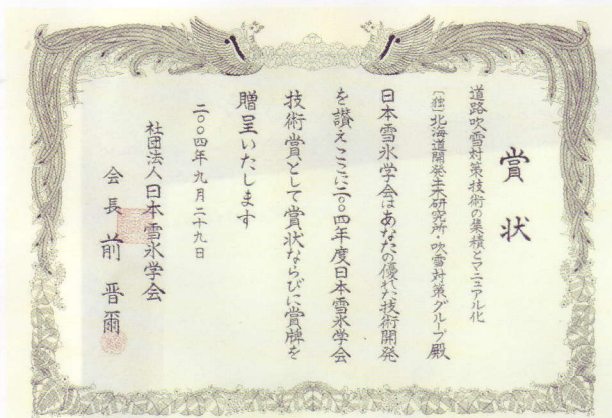 賞状
道路吹雪対策技術の集積とマニュアル化
(独)北海道開発土木研究所・吹雪対策グループ殿
日本雪氷学会はあなたの優れた技術開発
を讃えここに二〇〇四年度日本雪氷学会
技術賞として賞状ならびに賞牌を
贈呈いたします
二〇〇四年九月二十九日
社団法人日本雪氷学会
会長 前 晋爾